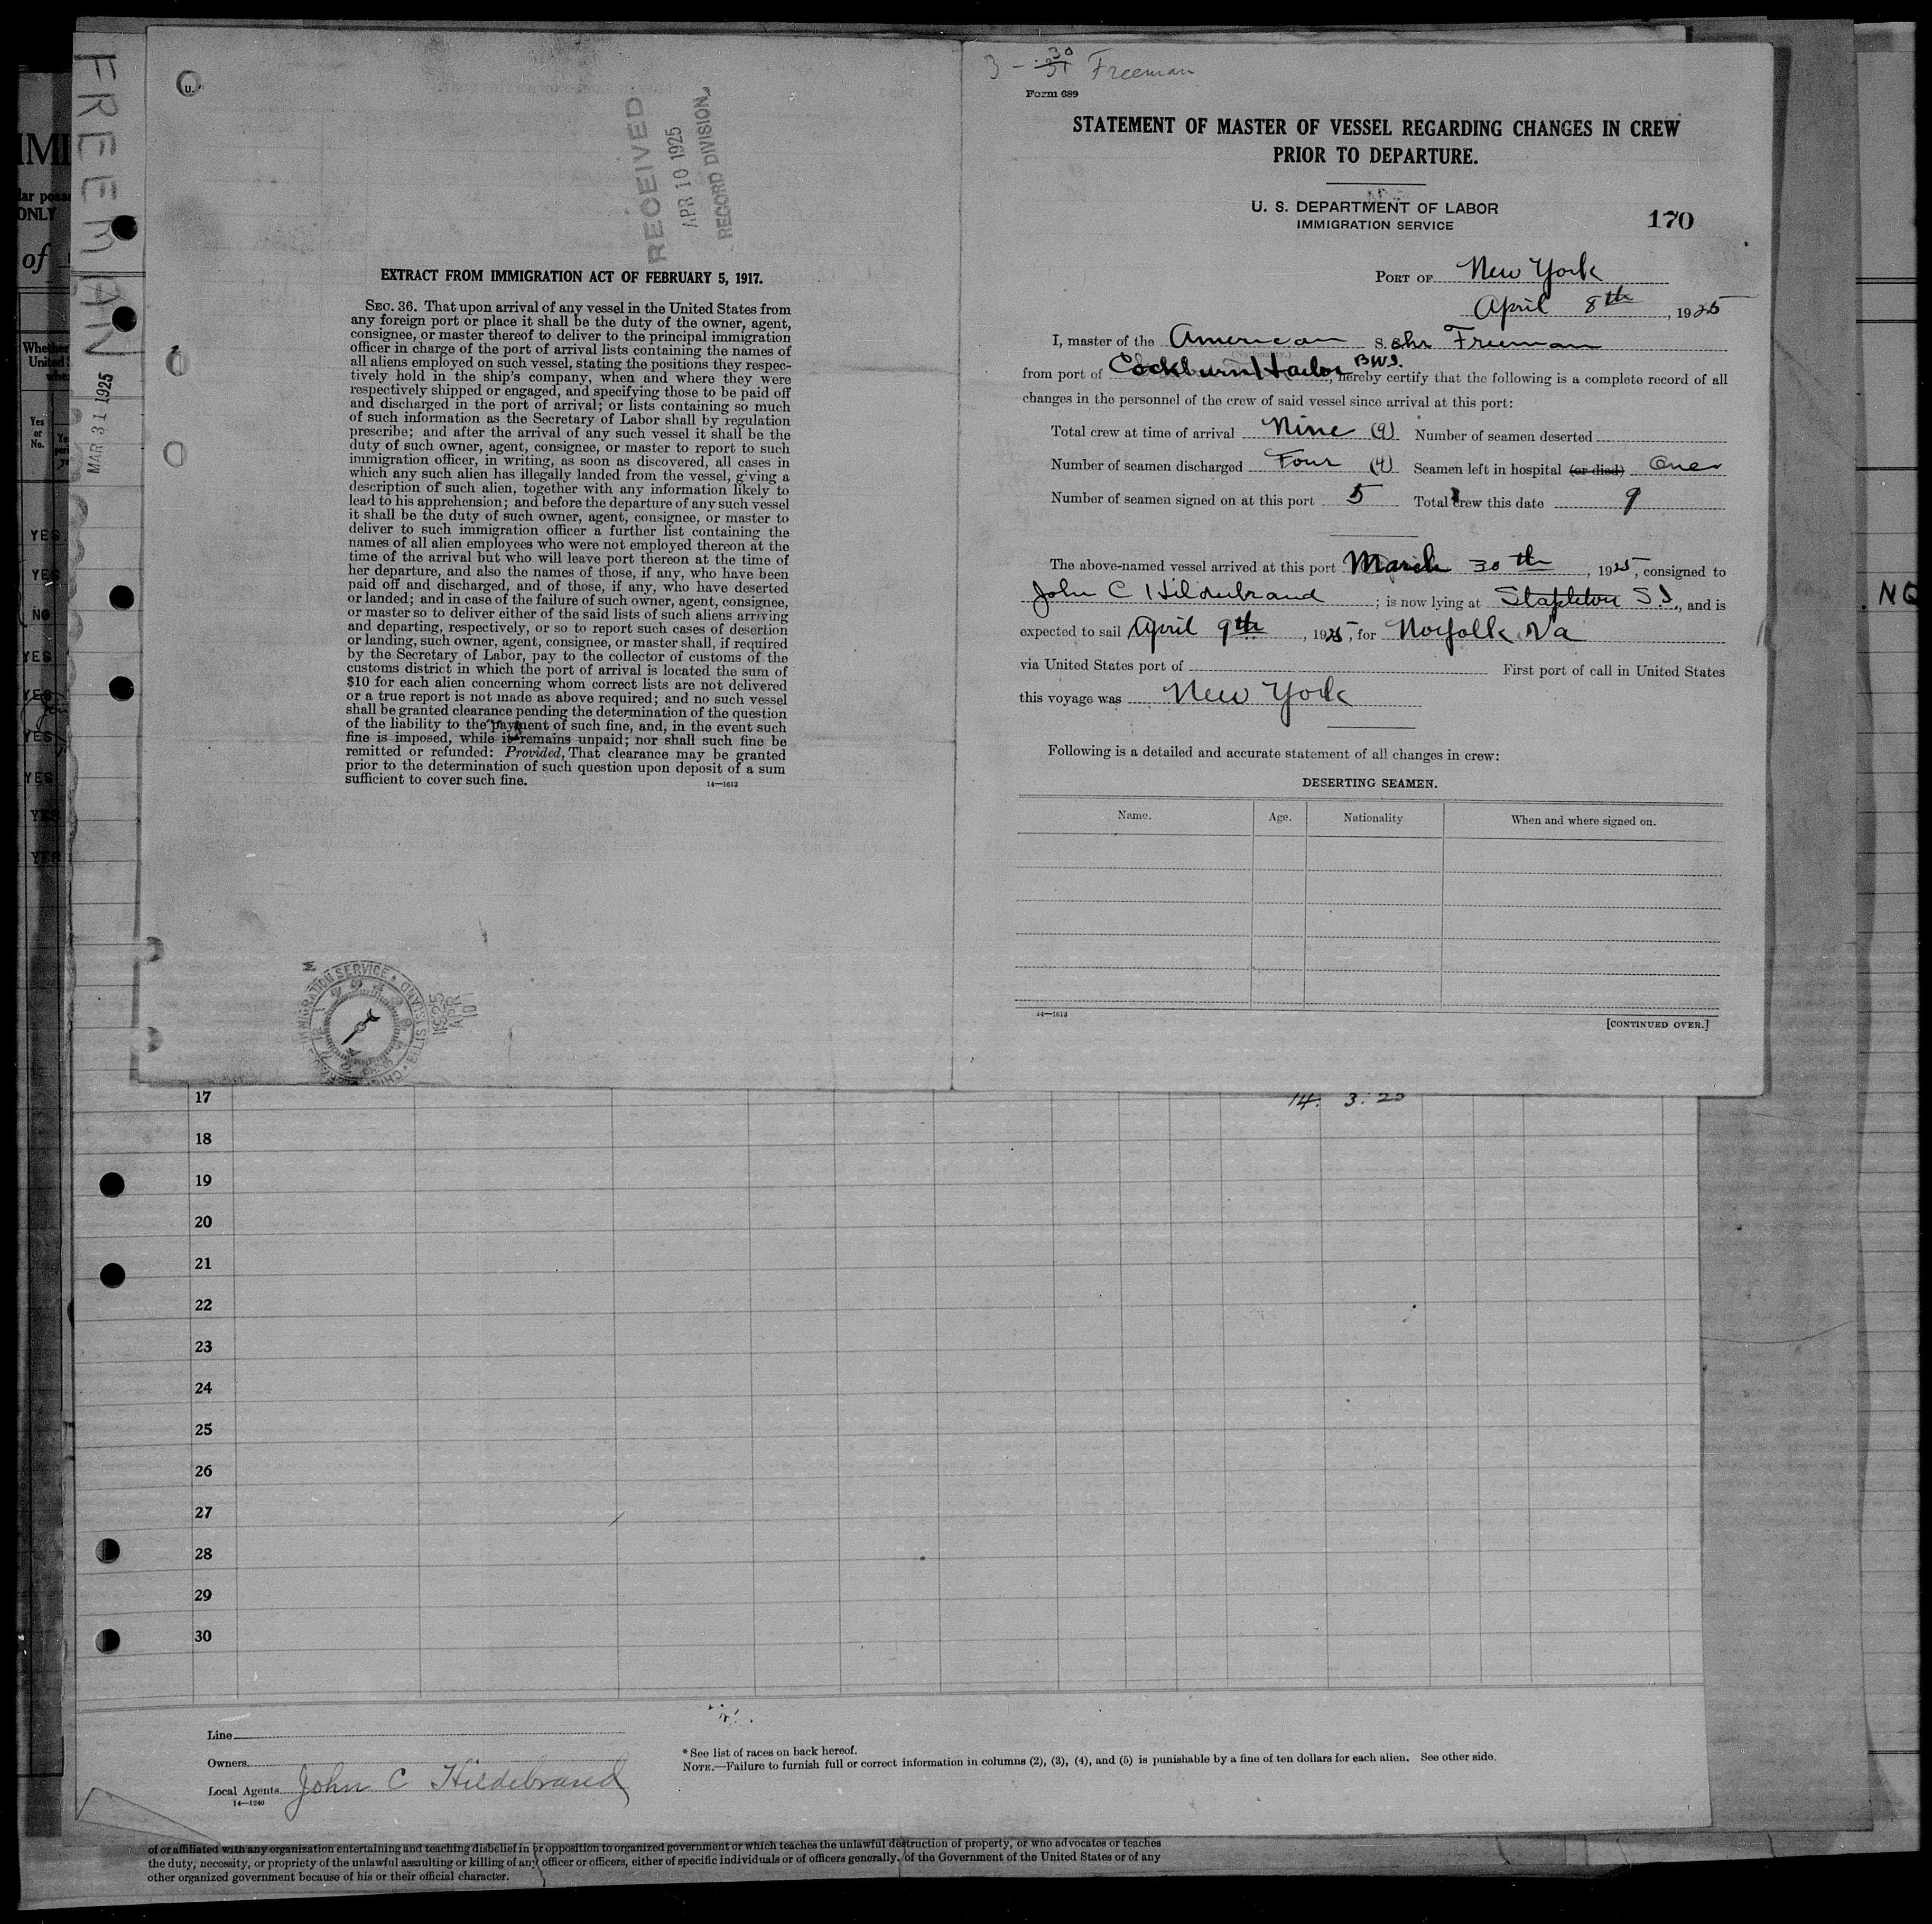 FREEMAN
MAR 31 1925
IMMI
lar posse
ONLY
of
Whether
United S
whe
Yes
or
No.
YES
YES
NO
YES
YES
YES
YES
YES
YES
U.
RECEIVED
APR 10 1925
RECORD DIVISION
EXTRACT FROM IMMIGRATION ACT OF FEBRUARY 5, 1917.
SEC. 36. That upon arrival of any vessel in the United States from
any foreign port or place it shall be the duty of the owner, agent,
consignee, or master thereof to deliver to the principal immigration
officer in charge of the port of arrival lists containing the names of
all aliens employed on such vessel, stating the positions they respec-
tively hold in the ship's company, when and where they were
respectively shipped or engaged, and specifying those to be paid off
and discharged in the port of arrival; or lists containing so much
of such information as the Secretary of Labor shall by regulation
prescribe; and after the arrival of any such vessel it shall be the
duty of such owner, agent, consignee, or master to report to such
immigration officer, in writing, as soon as discovered, all cases in
which any such alien has illegally landed from the vessel, giving a
description of such alien, together with any information likely to
lead to his apprehension; and before the departure of any such vessel
it shall be the duty of such owner, agent, consignee, or master to
deliver to such immigration officer a further list containing the
names of all alien employees who were not employed thereon at the
time of the arrival but who will leave port thereon at the time of
her departure, and also the names of those, if any, who have been
paid off and discharged, and of those, if any, who have deserted
or landed; and in case of the failure of such owner, agent, consignee,
or master so to deliver either of the said lists of such aliens arriving
and departing, respectively, or so to report such cases of desertion
or landing, such owner, agent, consignee, or master shall, if required
by the Secretary of Labor, pay to the collector of customs of the
customs district in which the port of arrival is located the sum of
$10 for each alien concerning whom correct lists are not delivered
or a true report is not made as above required; and no such vessel
shall be granted clearance pending the determination of the question
of the liability to the payment of such fine, and, in the event such
fine is imposed, while it remains unpaid; nor shall such fine be
remitted or refunded: Provided, That clearance may be granted
prior to the determination of such question upon deposit of a sum
sufficient to cover such fine.
14—1613
IMMIGRATION SERVICE • ELLIS ISLAND
1925
APR
10
3 - 30
31 Freeman
Form 689
STATEMENT OF MASTER OF VESSEL REGARDING CHANGES IN CREW
PRIOR TO DEPARTURE.
U. S. DEPARTMENT OF LABOR
IMMIGRATION SERVICE
170
PORT OF New York
April 8th, 1925
I, master of the American S. Schr Freeman
(Nationality.)
from port of Cockburn Harbor B.W.I., hereby certify that the following is a complete record of all
changes in the personnel of the crew of said vessel since arrival at this port:
Total crew at time of arrival Nine (9) Number of seamen deserted
Number of seamen discharged Four (4) Seamen left in hospital (or died) One
Number of seamen signed on at this port 5 Total crew this date 9
The above-named vessel arrived at this port March 30th, 1925, consigned to
John C Hildebrand; is now lying at Stapleton S.I., and is
expected to sail April 9th, 1925, for Norfolk Va
via United States port of First port of call in United States
this voyage was New York
Following is a detailed and accurate statement of all changes in crew:
DESERTING SEAMEN.
Name. Age. Nationality When and where signed on.
14—1613
[CONTINUED OVER.]
NO
17
14. 3. 25
18
19
20
21
22
23
24
25
26
27
28
29
30
Line
Owners
Local Agents John C Hildebrand
14—1240
* See list of races on back hereof.
NOTE.—Failure to furnish full or correct information in columns (2), (3), (4), and (5) is punishable by a fine of ten dollars for each alien. See other side.
of or affiliated with any organization entertaining and teaching disbelief in or opposition to organized government or which teaches the unlawful destruction of property, or who advocates or teaches
the duty, necessity, or propriety of the unlawful assaulting or killing of any officer or officers, either of specific individuals or of officers generally, of the Government of the United States or of any
other organized government because of his or their official character.